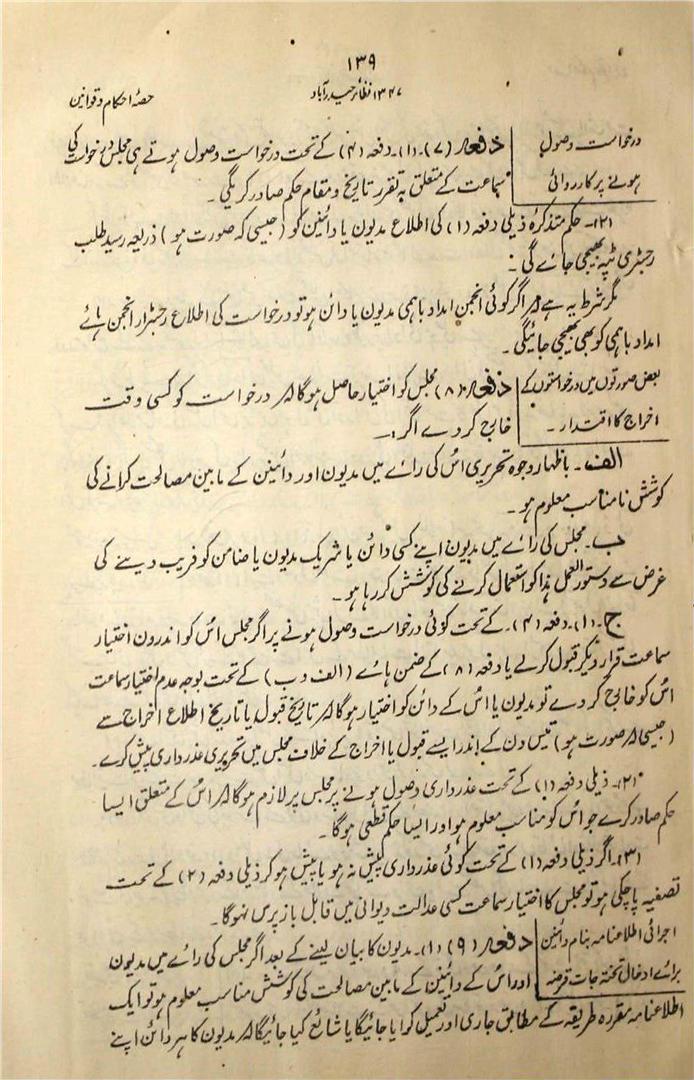 ۱۳۹
۱۳۴۷ نظائر حیدرآباد
حصۂ احکام و قوانین
درخواست وصول
ہونے پر کارروائی
دفعہ (۷)۔(۱)۔دفعہ (۴) کے تحت درخواست وصول ہوتے ہی مجلس درخواست کی
سماعت کے متعلق بہ تقرر تاریخ و مقام حکم صادر کریگی۔
(۲)۔ حکم متذکرۂ ذیلی دفعہ (۱) کی اطلاع مدیون یا دائنین کو (جیسی کہ صورت ہو) ذریعہ رسید طلب
رجسٹری ٹپہ بھیجی جائے گی:
مگر شرط یہ ہے کہ اگر کوئی انجمن امداد باہمی مدیون یا دائن ہو تو درخواست کی اطلاع رجسٹرار انجمن ہائے
امداد باہمی کو بھی بھیجی جائیگی۔
بعض صورتوں میں درخواستوں کے
اخراج کا اقتدار۔
دفعہ (۸) مجلس کو اختیار حاصل ہوگا کہ درخواست کو کسی وقت
خارج کر دے اگر:۔
الف۔ باظہار وجوہ تحریری اس کی رائے میں مدیون اور دائنین کے مابین مصالحت کرانے کی
کوشش نامناسب معلوم ہو۔
ب۔ مجلس کی رائے میں مدیون اپنے کسی دائن یا شریک مدیون یا ضامن کو فریب دینے کی
غرض سے دستور العمل ہذا کو استعمال کرنے کی کوشش کر رہا ہو۔
ج۔(۱)۔دفعہ (۴)۔ کے تحت کوئی درخواست وصول ہونے پر اگر مجلس اس کو اندرون اختیار
سماعت قرار دیکر قبول کرلے یا دفعہ (۸) کے ضمن ہائے (الف و ب) کے تحت بوجہ عدم اختیار سماعت
اس کو خارج کر دے تو مدیون یا اس کے دائن کو اختیار ہوگا کہ تاریخ قبول یا تاریخ اطلاع اخراج سے
(جیسی کہ صورت ہو) تیس دن کے اندر ایسے قبول یا اخراج کے خلاف مجلس میں تحریری عذر داری پیش کرے۔
(۲)۔ ذیلی دفعہ (۱) کے تحت عذر داری وصول ہونے پر مجلس پر لازم ہوگا کہ اس کے متعلق ایسا
حکم صادر کرے جو اس کو مناسب معلوم ہو اور ایسا حکم قطعی ہوگا۔
(۳)۔ اگر ذیلی دفعہ (۱) کے تحت کوئی عذر داری پیش نہ ہو یا پیش ہو کر ذیلی دفعہ (۲) کے تحت
تصفیہ پا چکی ہو تو مجلس کا اختیار سماعت کسی عدالت دیوانی میں قابل باز پرس نہوگا۔
اجرائی اطلاعنامہ بنام دائنین
برائے ادخال تختہ جات قرضہ
دفعہ (۹) (۱)۔ مدیون کا بیان لینے کے بعد اگر مجلس کی رائے میں مدیون
اور اس کے دائنین کے مابین مصالحت کی کوشش مناسب معلوم ہو تو ایک
اطلاعنامہ مقررہ طریقہ کے مطابق جاری اور تعمیل کرایا جائیگا یا شائع کیا جائیگا کہ مدیون کا ہر دائن اپنے